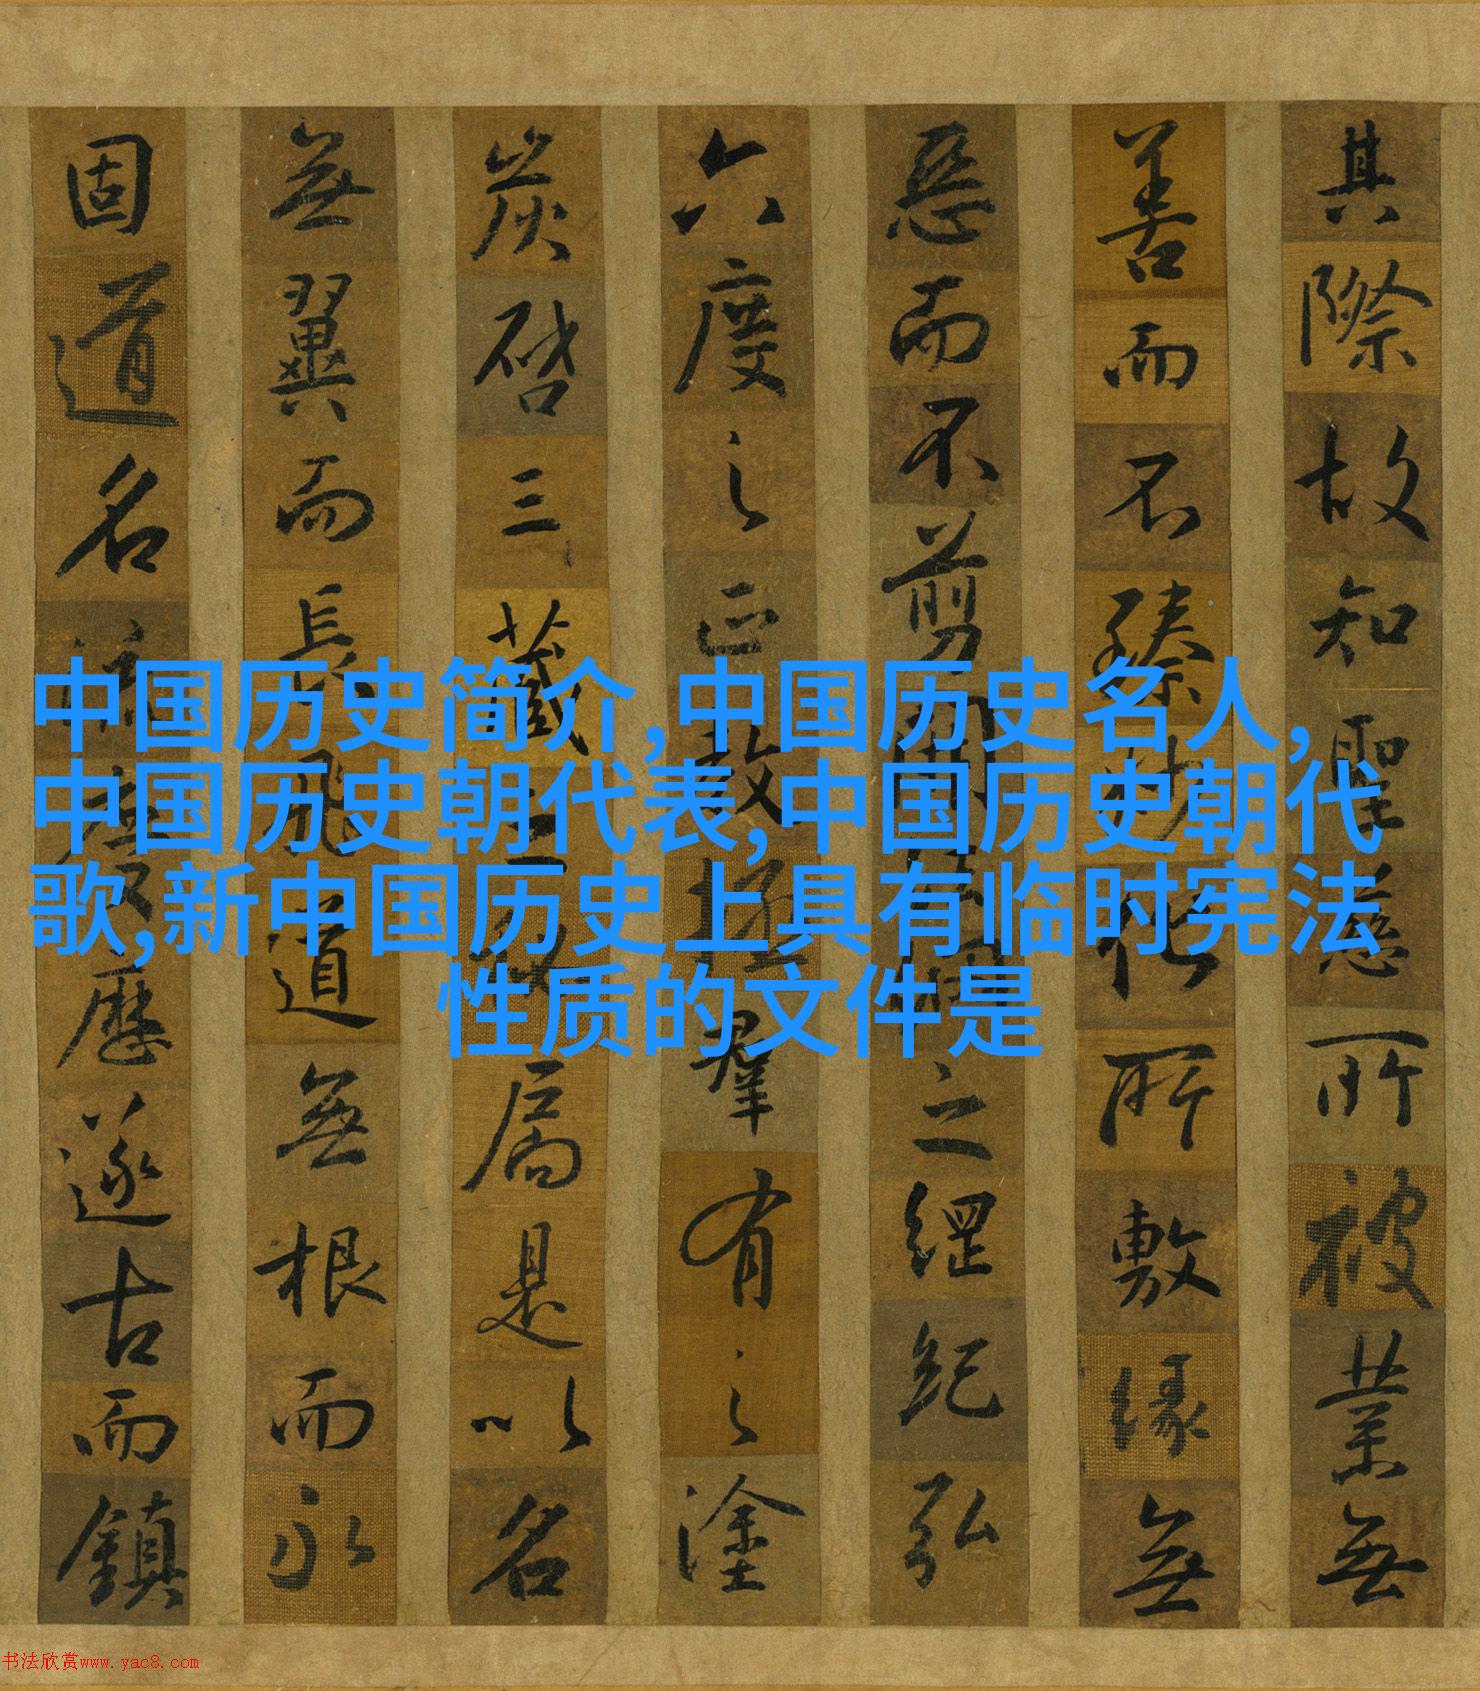 其際故知聖慈所被業無
善而不臻妙化所敷緣無
惡而不剪開法網之綱紀弘
六度之正教拯羣有之塗
炭啓三藏之秘扃是以名
無翼而長飛道無根而永
固道名流慶歷遂古而鎮
中国历史简介,中国历史名人,
中国历史朝代表,中国历史朝代
歌,新中国历史上具有临时宪法
性质的文件是
书法欣赏www.yac8.com